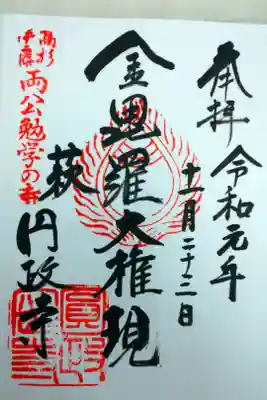 奉拝
令和元年
十一月二十二日
金毘羅大権現
萩
円政寺
高杉
伊藤
両公勉学の寺
圓政寺